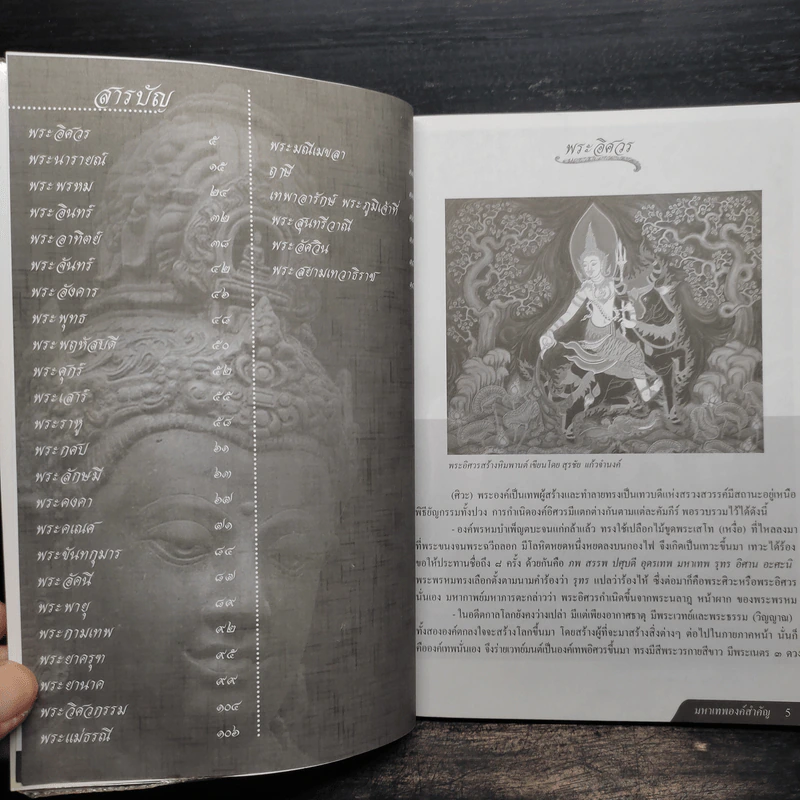 สารบัญ
พระอิศวร ๕
พระนารายณ์ ๑๕
พระพรหม ๒๔
พระอินทร์ ๓๒
พระอาทิตย์ ๓๘
พระจันทร์ ๔๒
พระอังคาร ๔๖
พระพุทธ ๔๘
พระพฤหัสบดี ๕๐
พระศุกร์ ๕๒
พระเสาร์ ๕๕
พระราหู ๕๘
พระกาฬ ๖๑
พระลักษมี ๖๓
พระคงคา ๖๗
พระคเณศ ๗๑
พระขันทกุมาร ๘๔
พระอัคนี ๘๗
พระพายุ ๘๙
พระกามเทพ ๙๒
พระยาครุฑ ๙๕
พระยานาค ๙๙
พระวิศวกรรม ๑๐๔
พระแม่ธรณี ๑๐๖
พระมณีเมขลา
ฤๅษี
เทพาอารักษ์ พระภูมิเจ้าที่
พระสุนทรีวาณี
พระอัศวิน
พระสยามเทวาธิราช
พระอิศวร
พระอิศวรสร้างหิมพานต์ เขียนโดย สุรชัย แก้วจำนงค์
(ศิวะ) พระองค์เป็นเทพผู้สร้างและทำลายทรงเป็นเทวบดีแห่งสรวงสวรรค์มีสถานะอยู่เหนือ
พิธีอัญกรรมทั้งปวง การกำเนิดองค์อิศวรมีแตกต่างกันตามแต่ละคัมภีร์ พอรวบรวมไว้ได้ดังนี้
- องค์พรหมบำเพ็ญตบะจนแก่กล้าแล้ว ทรงใช้เปลือกไม้ขูดพระเสโท (เหงื่อ) ที่ไหลลงมา
ที่พระขนงจนพระฉวีถลอก มีโลหิตหอดหนึ่งหยดลงบนกองไฟ จึงเกิดเป็นเทวะขึ้นมา เทวะได้ร้อง
ขอให้ประทานชื่อถึง ๘ ครั้ง ด้วยกันคือ ภพ สรรพ ปศุบดี อุตรเทพ มหาเทพ รุทร อิศาน อะศะนิ
พระพรหมทรงเลือกตั้งตามนามคำร้องว่า รุทร แปลว่าร้องไห้ ซึ่งต่อมาก็คือพระศิวะหรือพระอิศวร
นั่นเอง มหากาพย์มหาภารตะกล่าวว่า พระอิศวรกำเนิดขึ้นจากพระนลาฏ หน้าผาก ของพระพรหม
- ในอดีตกาลโลกยังคงว่างเปล่า มีแต่เพียงอากาศธาตุ มีพระเวทย์และพระธรรม (วิญญาณ)
ทั้งสององค์ตกลงใจจะสร้างโลกขึ้นมา โดยสร้างผู้ที่จะมาสร้างสิ่งต่างๆ ต่อไปในภายภาคหน้า นั่นก็
คือองค์เทพนั่นเอง จึงร่ายเวทย์มนต์เป็นองค์เทพอิศวรขึ้นมา ทรงมีสีพระวรกายสีขาว มีพระเนตร ๓ ดวง
มหาเทพองค์สำคัญ 5